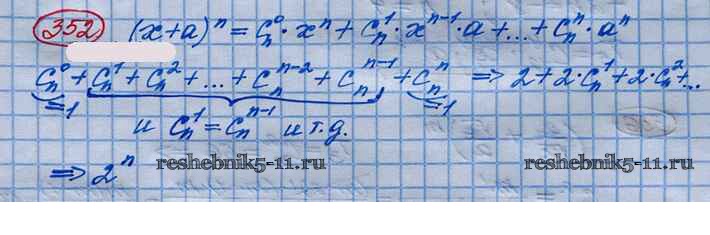 352 (x+a)ⁿ = Cₙ⁰·xⁿ + Cₙ¹·xⁿ⁻¹·a + ... + Cₙⁿ·aⁿ
Cₙ⁰ + Cₙ¹ + Cₙ² + ... + Cₙⁿ⁻² + Cₙⁿ⁻¹ + Cₙⁿ ⇒ 2 + 2·Cₙ¹ + 2·Cₙ² + ...
=1 =1
и Cₙ¹ = Cₙⁿ⁻¹ и т.д.
⇒ 2ⁿ reshebnik5-11.ru reshebnik5-11.ru